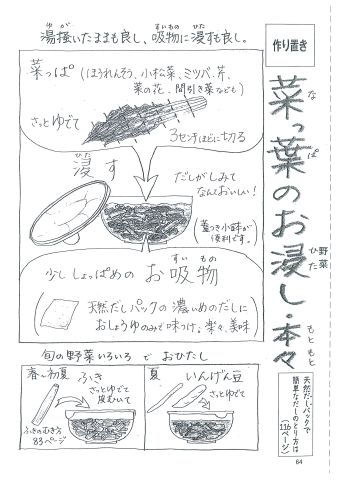 湯掻いたままも良し、吸物に浸すも良し。
ゆが
すいもの
ひた
作り置き
菜っ葉のお浸し・本々
な
ぱ
ひた
もともと
野菜
菜っぱ(ほうれんそう、小松菜、ミツバ、芹、
菜の花、間引き菜なども)
さっとゆでて
3センチほどに切る
浸す
ひた
だしがしみて
なんておいしい!
(蓋つき小鉢が
便利です。)
少ししょっぱめのお吸物
すいもの
(天然だしパックの濃いめのだしに
おしょうゆのみで味つけ。楽々、美味)
旬の野菜いろいろでおひたし
春〜初夏 ふき
さっとゆでて
皮むいて
ふきのむき方
83ページ
夏 いんげん豆
さっとゆでて
天然だしパックで
簡単なだしのとり方は
(116ページ)
64